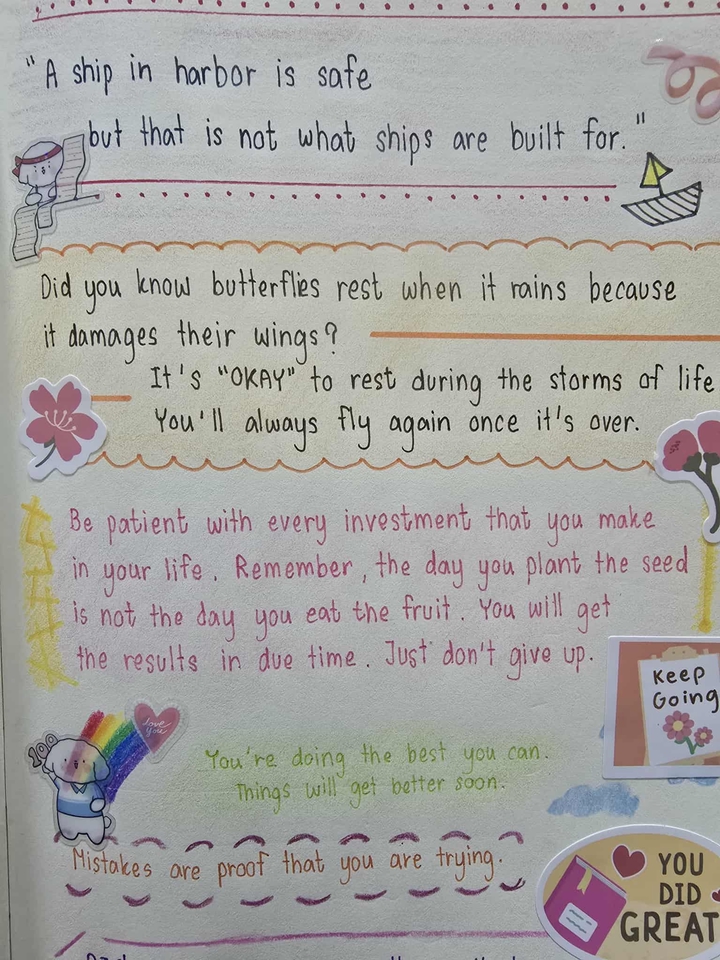 "A ship in harbor is safe
but that is not what ships are built for."
Did you know butterflies rest when it rains because
it damages their wings?
It's "OKAY" to rest during the storms of life
You'll always fly again once it's over.
Be patient with every investment that you make
in your life. Remember, the day you plant the seed
is not the day you eat the fruit. You will get
the results in due time. Just don't give up.
Keep
Going
love
you
100
You're doing the best you can.
Things will get better soon.
Mistakes are proof that you are trying.
YOU
DID
GREAT